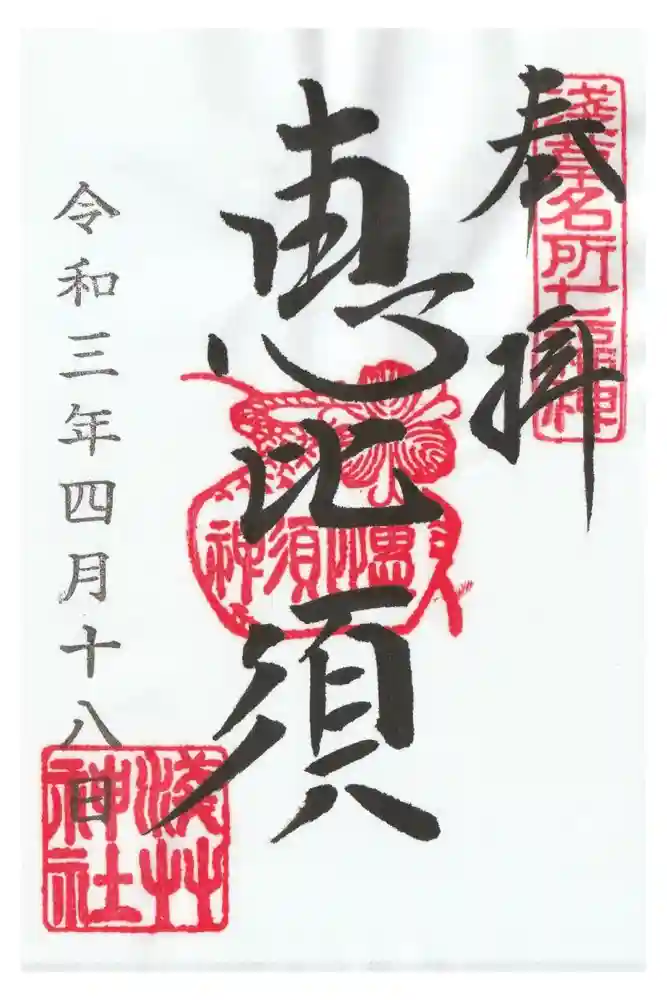 奉拝
淺草名所七福神
恵比須
恵比須神
令和三年四月十八日
淺草神社